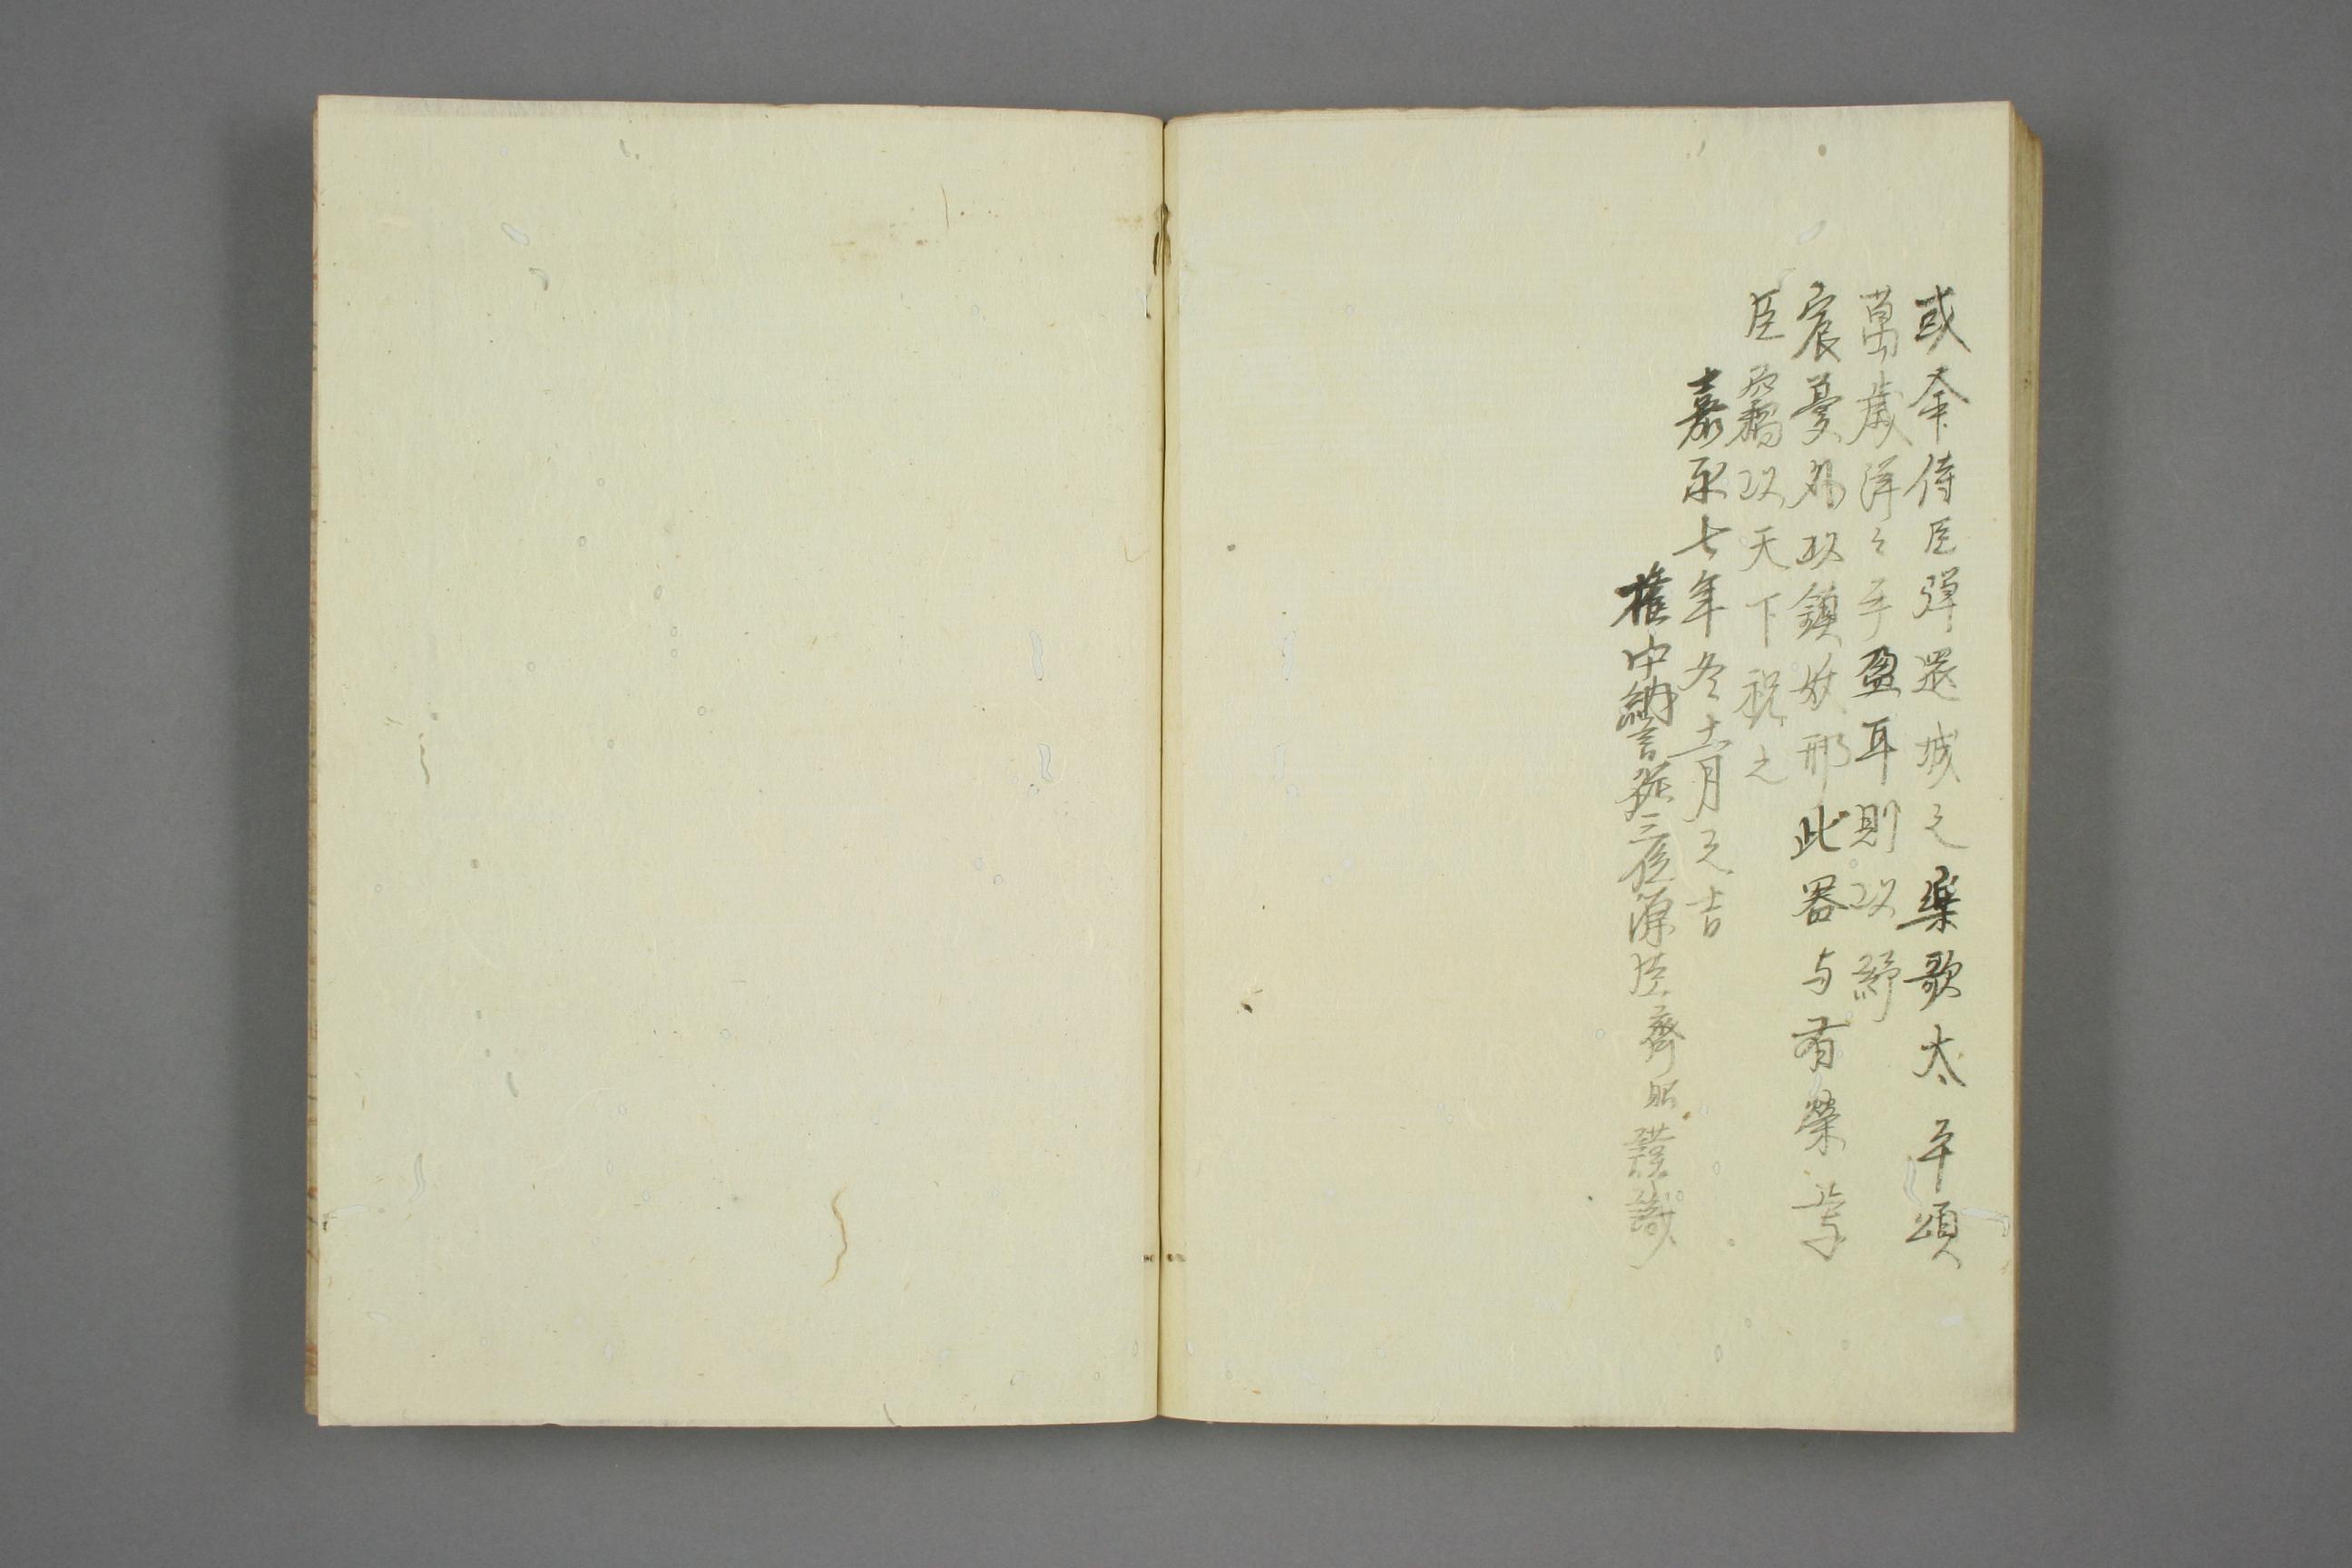 或命侍臣彈還城之楽歌太平頌
萬歳洋々乎盈耳則以紓
宸憂外以鎮妖邪此器与有榮焉
臣竊以天下祝之
嘉永七年冬十二月之吉
権中納言従三位源朝臣齊昭謹識